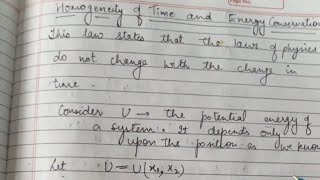 Homogeneity of Time and Energy Conservation
This law states that the laws of physics
do not change with the change in
time.
Consider U → the potential energy of
a system. It depends only
upon the position as we know
Let U = U(x₁, x₂)